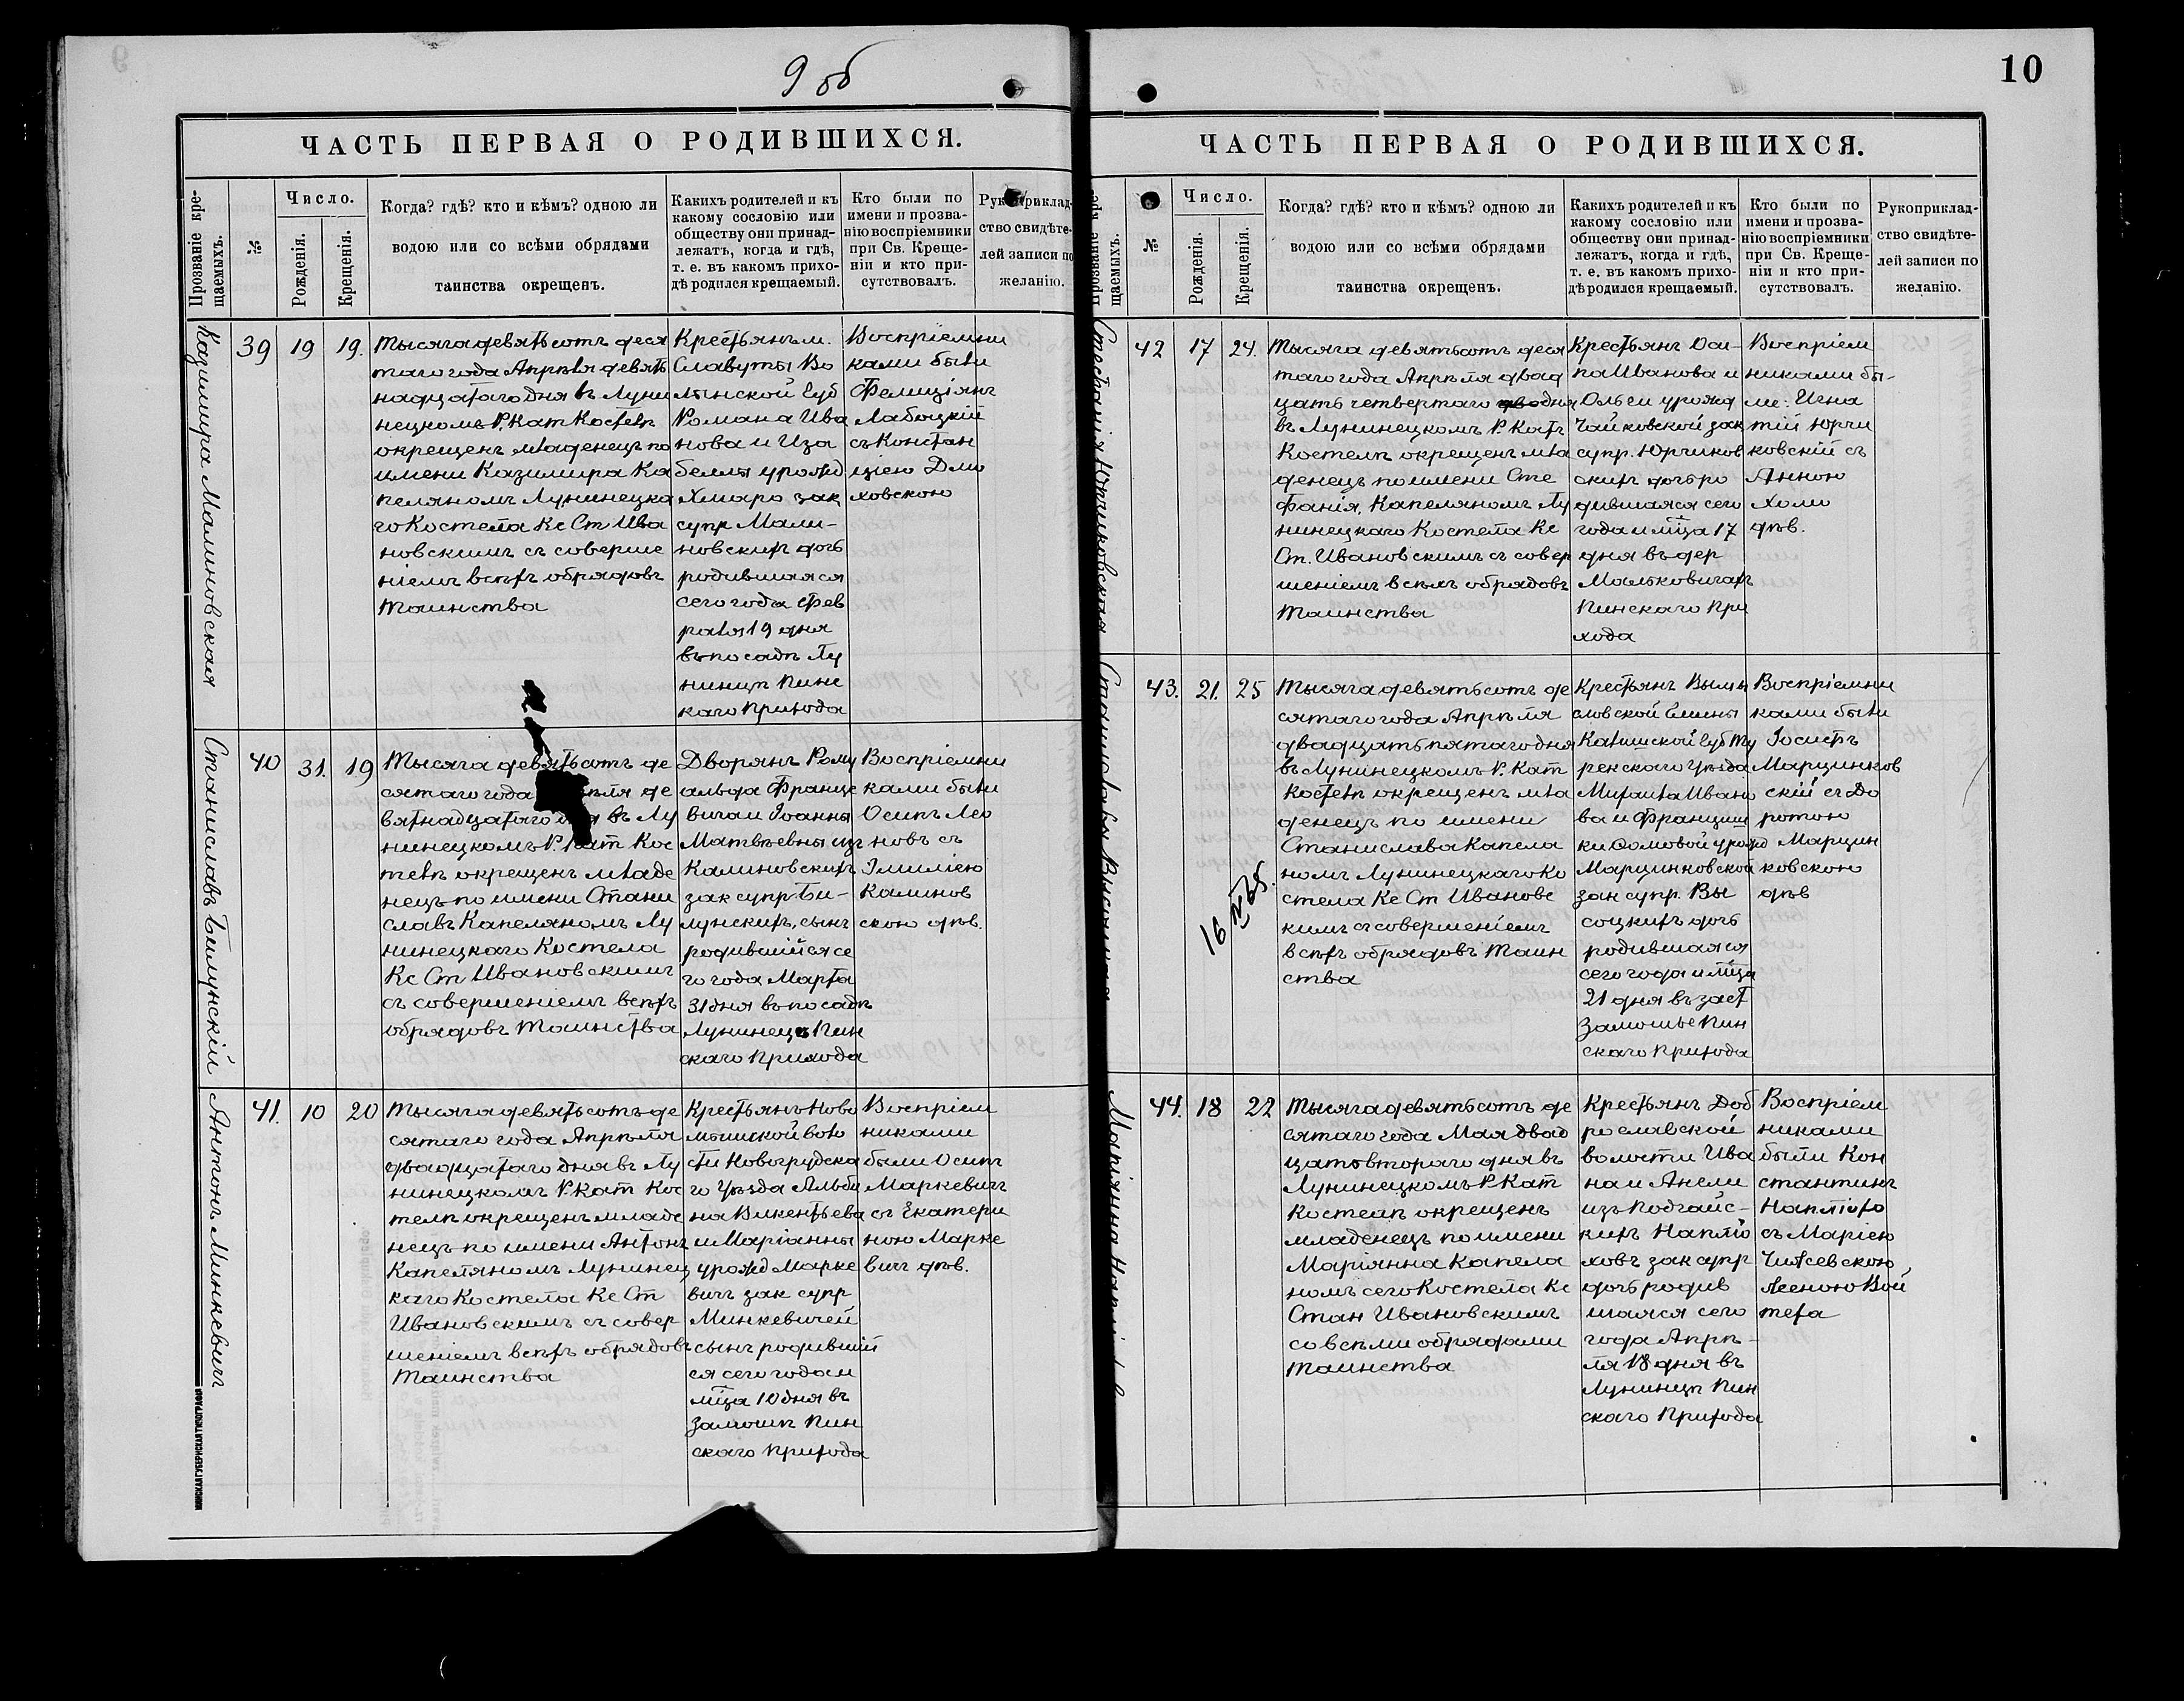 9 об
ЧАСТЬ ПЕРВАЯ О РОДИВШИХСЯ.
Прозваніе кре-
щаемыхъ.
№
Число.
Рожденія.
Крещенія.
Когда? гдѣ? кто и кѣмъ? одною ли
водою или со всѣми обрядами
таинства окрещенъ.
Какихъ родителей и къ
какому сословію или
обществу они принад-
лежатъ, когда и гдѣ,
т. е. въ какомъ прихо-
дѣ родился крещаемый.
Кто были по
имени и прозва-
нію воспріемники
при Св. Креще-
ніи и кто при-
сутствовалъ.
Рукоприклад-
ство свидѣте-
лей записи по
желанію.
Казимира Малиновская
39
19
19.
Тысяча девятьсотъ деся
таго года Апрѣля девят
надцатаго дня въ Луни
нецкомъ Р. Кат Костелѣ
окрещенъ младенецъ по
имени Казимира Ка
пеляномъ Лунинецка
го Костела Кс Ст Ива
новскимъ съ соверше
ніемъ всѣхъ обрядовъ
Таинства
Крестьянъ м.
Славуты Во
лынской Губ
Романа Ива
нова и Иза
беллы урожд
Хмара зак
супр Мали-
новскихъ дочь
родившаяся
сего года Фев
раля 19 дня
въ посадѣ Лу
нинцѣ Пинс
каго Прихода
Воспріемни
ками были
Фелиціянъ
Лабоцкій
съ Констан
ціею Дмо
ховскою
Станиславъ Билунскій
40
31.
19
Тысяча девятьсотъ де
сятаго года
вятнадцатаго дня въ Лу
нинецкомъ Р. Кат Кос
телѣ окрещенъ младе
нецъ по имени Стани
славъ Капеляномъ Лу
нинецкаго Костела
Кс Ст Ивановскимъ
съ совершеніемъ всѣхъ
обрядовъ Таинства
Дворянъ Рому
альда Франце
вича и Іоанны
Матвѣевны изъ
Калиновскихъ
зак супр Би-
лунскихъ, сынъ
родившійся се
го года Марта
31 дня въ посадѣ
Лунинецъ Пин
скаго Прихода
Воспріемни
ками были
Осипъ Лео
новъ съ
Эмиліею
Калинов
скою дѣв.
Антонъ Минкевичъ
41.
10
20
Тысяча девятьсотъ де
сятаго года Апрѣля
двадцатаго дня въ Лу
нинецкомъ Р. Кат Кос
телѣ окрещенъ младе
нецъ по имени Антонъ
Капеляномъ Лунинец
каго Костела Кс Ст
Ивановскимъ съ совер
шеніемъ всѣхъ обрядовъ
Таинства
Крестьянъ Ново
мышской воло
сти Новогрудска
го Уѣзда Альби
на Викентьева
и Маріанны
урожд Марке
вичъ зак супр
Минкевичей
сынъ родивший
ся сего года и
мѣца 10 дня въ
Замошѣ Пин
скаго Прихода
Воспріем
никами
были Осипъ
Маркевичъ
съ Екатери
ною Марке
вичъ дѣв.
МИНСКАЯ ГУБЕРНСКАЯ ТИПОГРАФІЯ
10
ЧАСТЬ ПЕРВАЯ О РОДИВШИХСЯ.
щаемыхъ.
№
Число.
Рожденія.
Крещенія.
Когда? гдѣ? кто и кѣмъ? одною ли
водою или со всѣми обрядами
таинства окрещенъ.
Какихъ родителей и къ
какому сословію или
обществу они принад-
лежатъ, когда и гдѣ,
т. е. въ какомъ прихо-
дѣ родился крещаемый.
Кто были по
имени и прозва-
нію воспріемники
при Св. Креще-
ніи и кто при-
сутствовалъ.
Рукоприклад-
ство свидѣте-
лей записи по
желанію.
Стефанія Юрчиковская
42
17
24.
Тысяча девятьсотъ деся
таго года Апрѣля двад
цать четвертаго дня
въ Лунинецкомъ Р. Кат
Костелѣ окрещенъ мла
денецъ по имени Сте
фанія, Капеляномъ Лу
нинецкаго Костела Кс
Ст. Ивановскимъ съ совер
шеніемъ всѣхъ обрядовъ
Таинства
Крестьянъ Оси-
па Иванова и
Ольги урожд
Чайковской зак
супр. Юрчиков
скихъ дочь ро
дившаяся сего
года и мѣца 17
дня въ дер
Мальковичахъ
Пинскаго При
хода
Воспріем
никами бы-
ли: Игна
тій Юрчи
ковскій съ
Анною
Холо
дѣв.
Станислава Высоцкая
43.
21.
25
16 №25.
Тысяча девятьсотъ де
сятаго года Апрѣля
двадцать пятаго дня
въ Лунинецкомъ Р. Кат
Костелѣ окрещенъ мла
денецъ по имени
Станислава Капеля
номъ Лунинецкаго Ко
стела Кс Ст Ивановс
кимъ съ совершеніемъ
всѣхъ обрядовъ Таин
ства
Крестьянъ
словской Гмины
Калишской Губ Ту
рекскаго Уѣзда
Михаила Ивано
ва и Франциш
ки Соловой урожд
Марцинковской
зак супр. Вы
соцкихъ дочь
родившаяся
сего года и мѣца
21 дня въ заст
Замошье Пин
скаго Прихода
Воспріемни
ками были
Іосифъ
Марцинков
скій съ До
ротою
Марцин
ковскою
дѣв
44.
18
22
Тысяча девятьсотъ де
сятаго года Мая двад
цать втораго дня въ
Лунинецкомъ Р Кат
Костелѣ окрещенъ
младенецъ по имени
Маріянна Капеля
номъ сего Костела Кс
Стан Ивановскимъ
со всѣми обрядами
Таинства
Крестьянъ Доб
рославской
волости Ива
на и Анели
изъ Подгайс-
кихъ Наплю
ховъ зак супр
дочь родив
шаяся сего
года Апрѣ-
ля 18 дня въ
Лунинцѣ Пин
скаго Прихода
Воспріем
никами
были Кон
стантинъ
съ Маріею